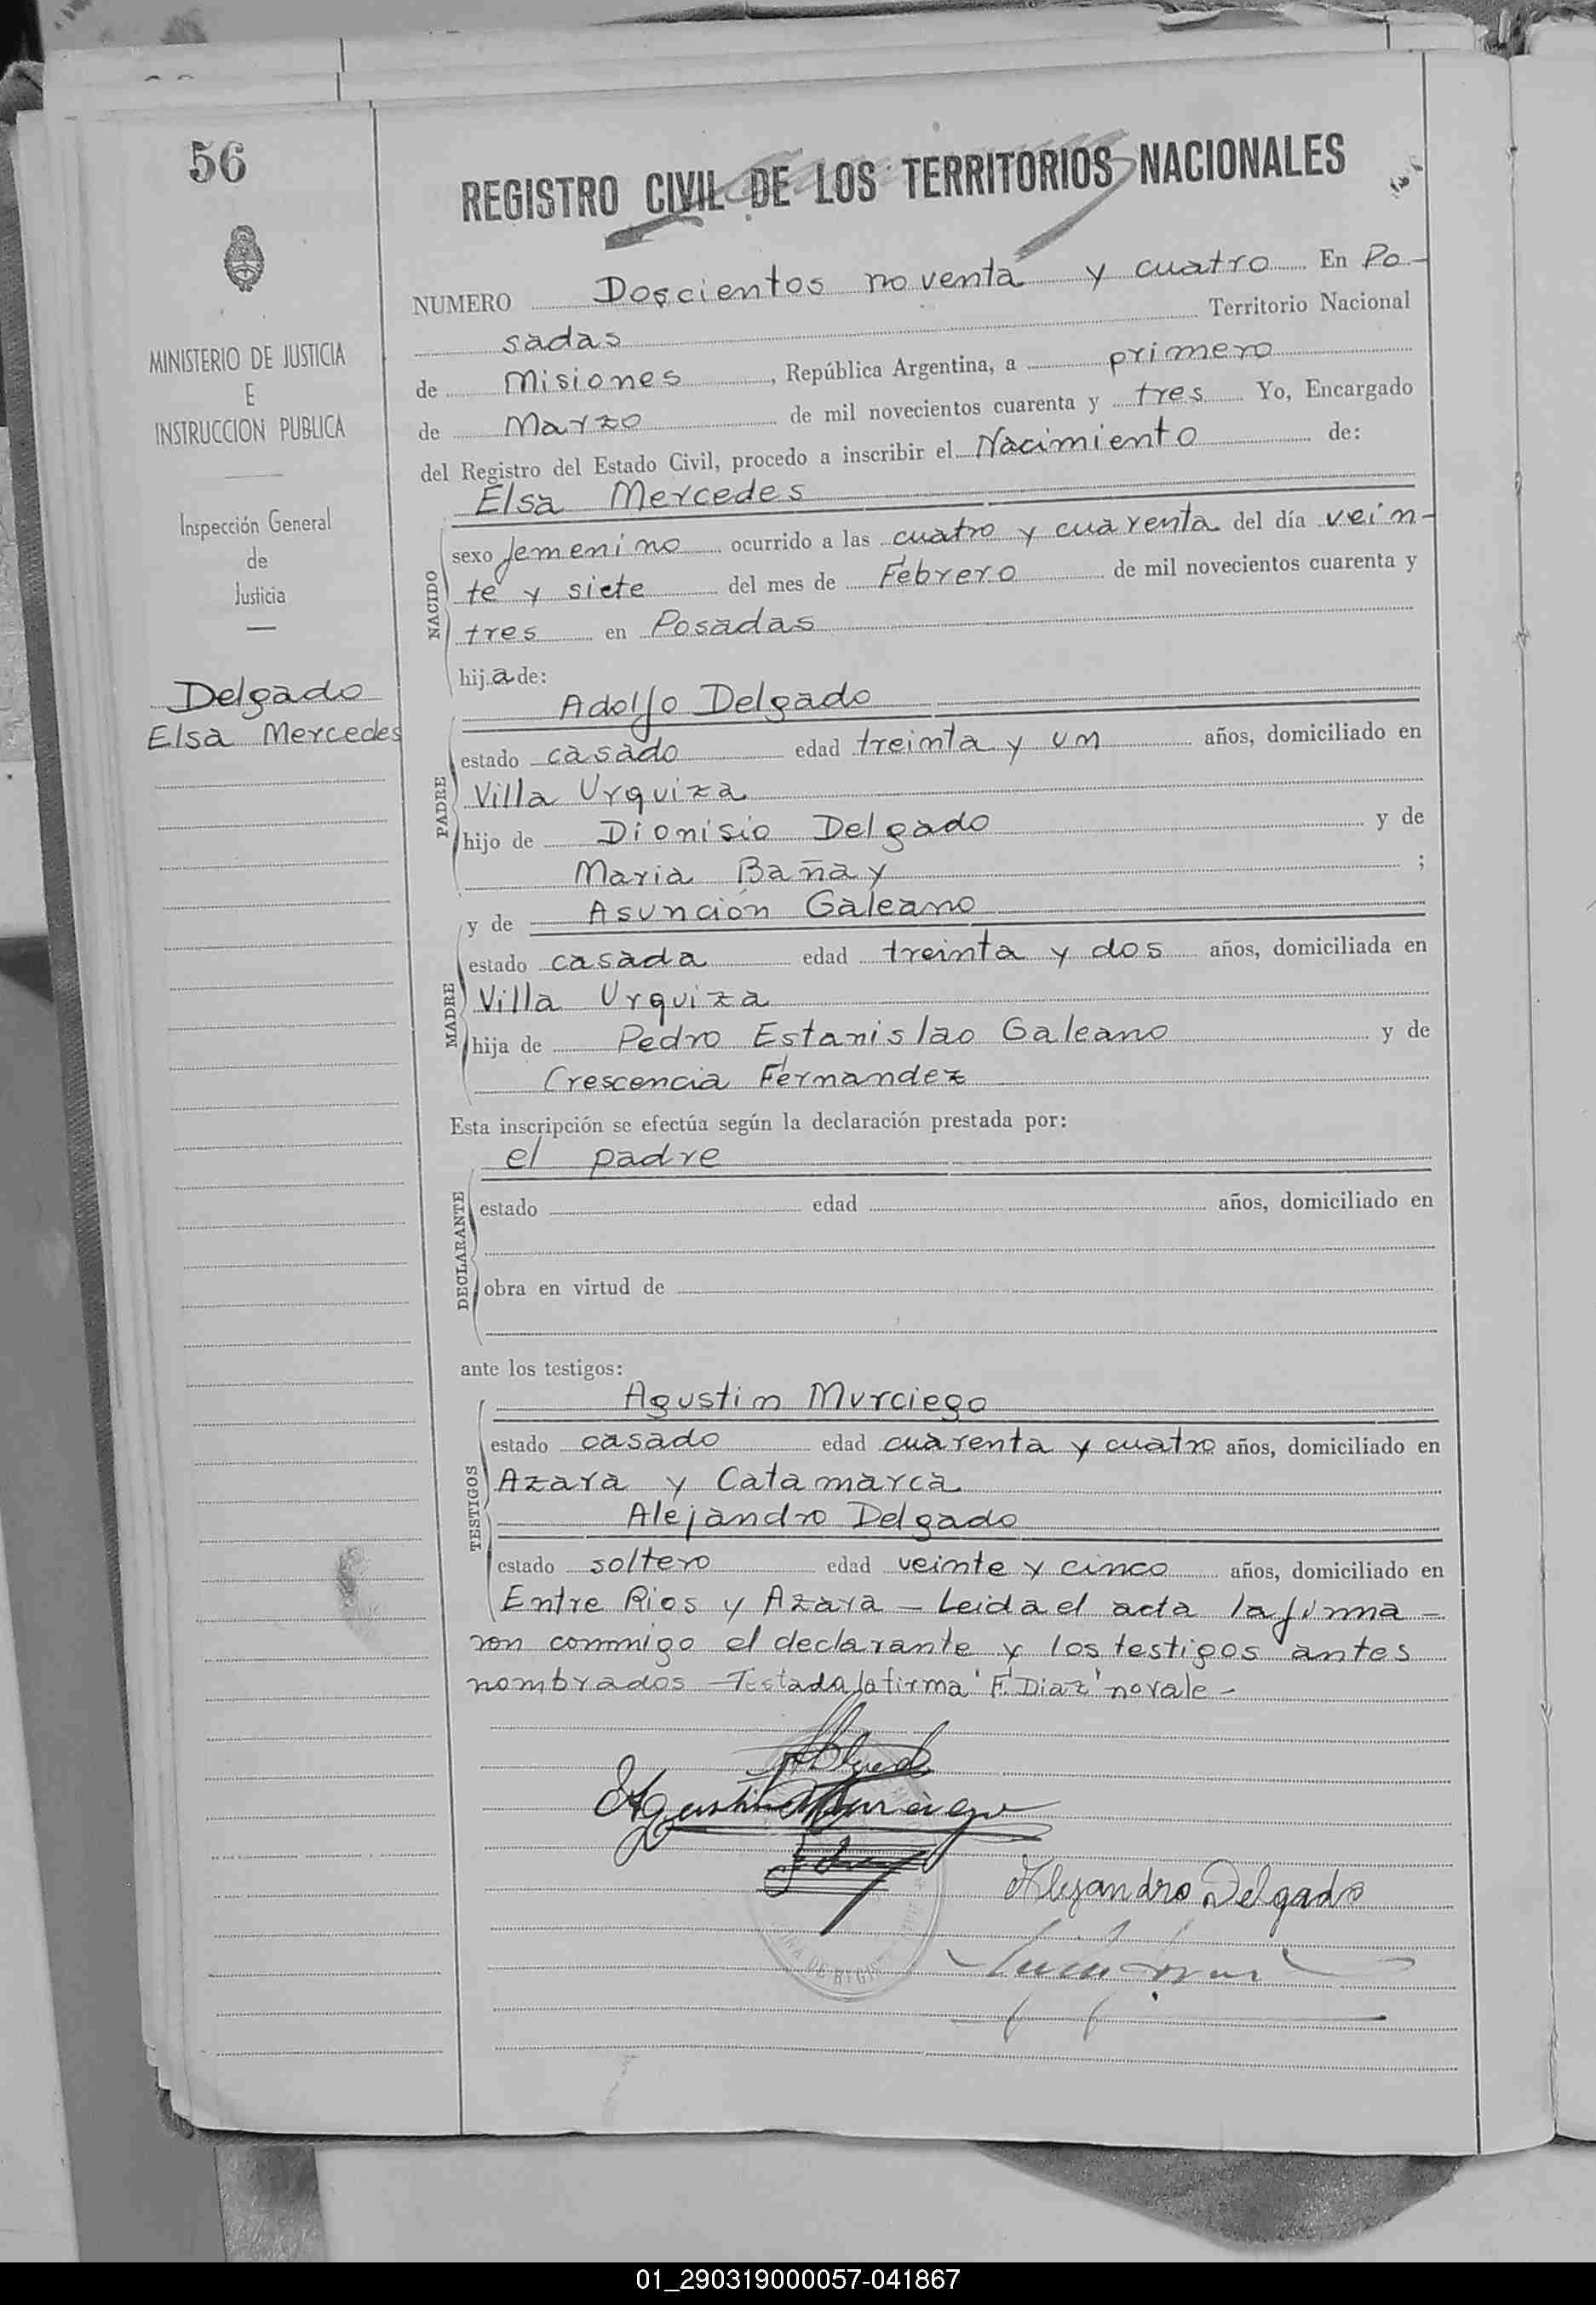 56
MINISTERIO DE JUSTICIA
E
INSTRUCCION PUBLICA
Inspección General
de
Justicia
Delgado
Elsa Mercedes
REGISTRO CIVIL DE LOS TERRITORIOS NACIONALES
NUMERO Doscientos noventa y cuatro En Po-
sadas Territorio Nacional
de Misiones, República Argentina, a primero
de Marzo de mil novecientos cuarenta y tres Yo, Encargado
del Registro del Estado Civil, procedo a inscribir el Nacimiento de:
Elsa Mercedes
NACIDO
sexo femenino ocurrido a las cuatro y cuarenta del día vein-
te y siete del mes de Febrero de mil novecientos cuarenta y
tres en Posadas
hija de:
Adolfo Delgado
PADRE
estado casado edad treinta y un años, domiciliado en
Villa Urquiza
hijo de Dionisio Delgado y de
Maria Bañay ;
y de Asunción Galeano
MADRE
estado casada edad treinta y dos años, domiciliada en
Villa Urquiza
hija de Pedro Estanislao Galeano y de
Crescencia Fernandez
Esta inscripción se efectúa según la declaración prestada por:
el padre
DECLARANTE
estado edad años, domiciliado en
obra en virtud de
ante los testigos:
Agustin Murciego
TESTIGOS
estado casado edad cuarenta y cuatro años, domiciliado en
Azara y Catamarca
Alejandro Delgado
estado soltero edad veinte y cinco años, domiciliado en
Entre Rios y Azara - Leida el acta la firma -
ron conmigo el declarante y los testigos antes
nombrados - Testada la firma "F. Diaz" no vale -
Agustin Murciego
Alejandro Delgado
01_290319000057-041867